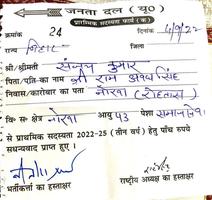 जनता दल (यू०)
प्राथमिक सदस्यता फार्म (क.)
क्रमांक 24 दिनांक 4/9/22
राज्य बिहार जिला
श्री/श्रीमती संजय कुमार
पिता/पति का नाम श्री राम अवध सिंह
निवास/कारोबार का पता नोखा (रोहतास)
वि० स० क्षेत्र नोखा आयु 43 पेशा समाजसेवा
से प्राथमिक सदस्यता 2022-25 (तीन वर्ष) हेतु पाँच रुपये
सधन्यवाद प्राप्त हुए।
भर्तीकर्ता का हस्ताक्षर राष्ट्रीय अध्यक्ष का हस्ताक्षर